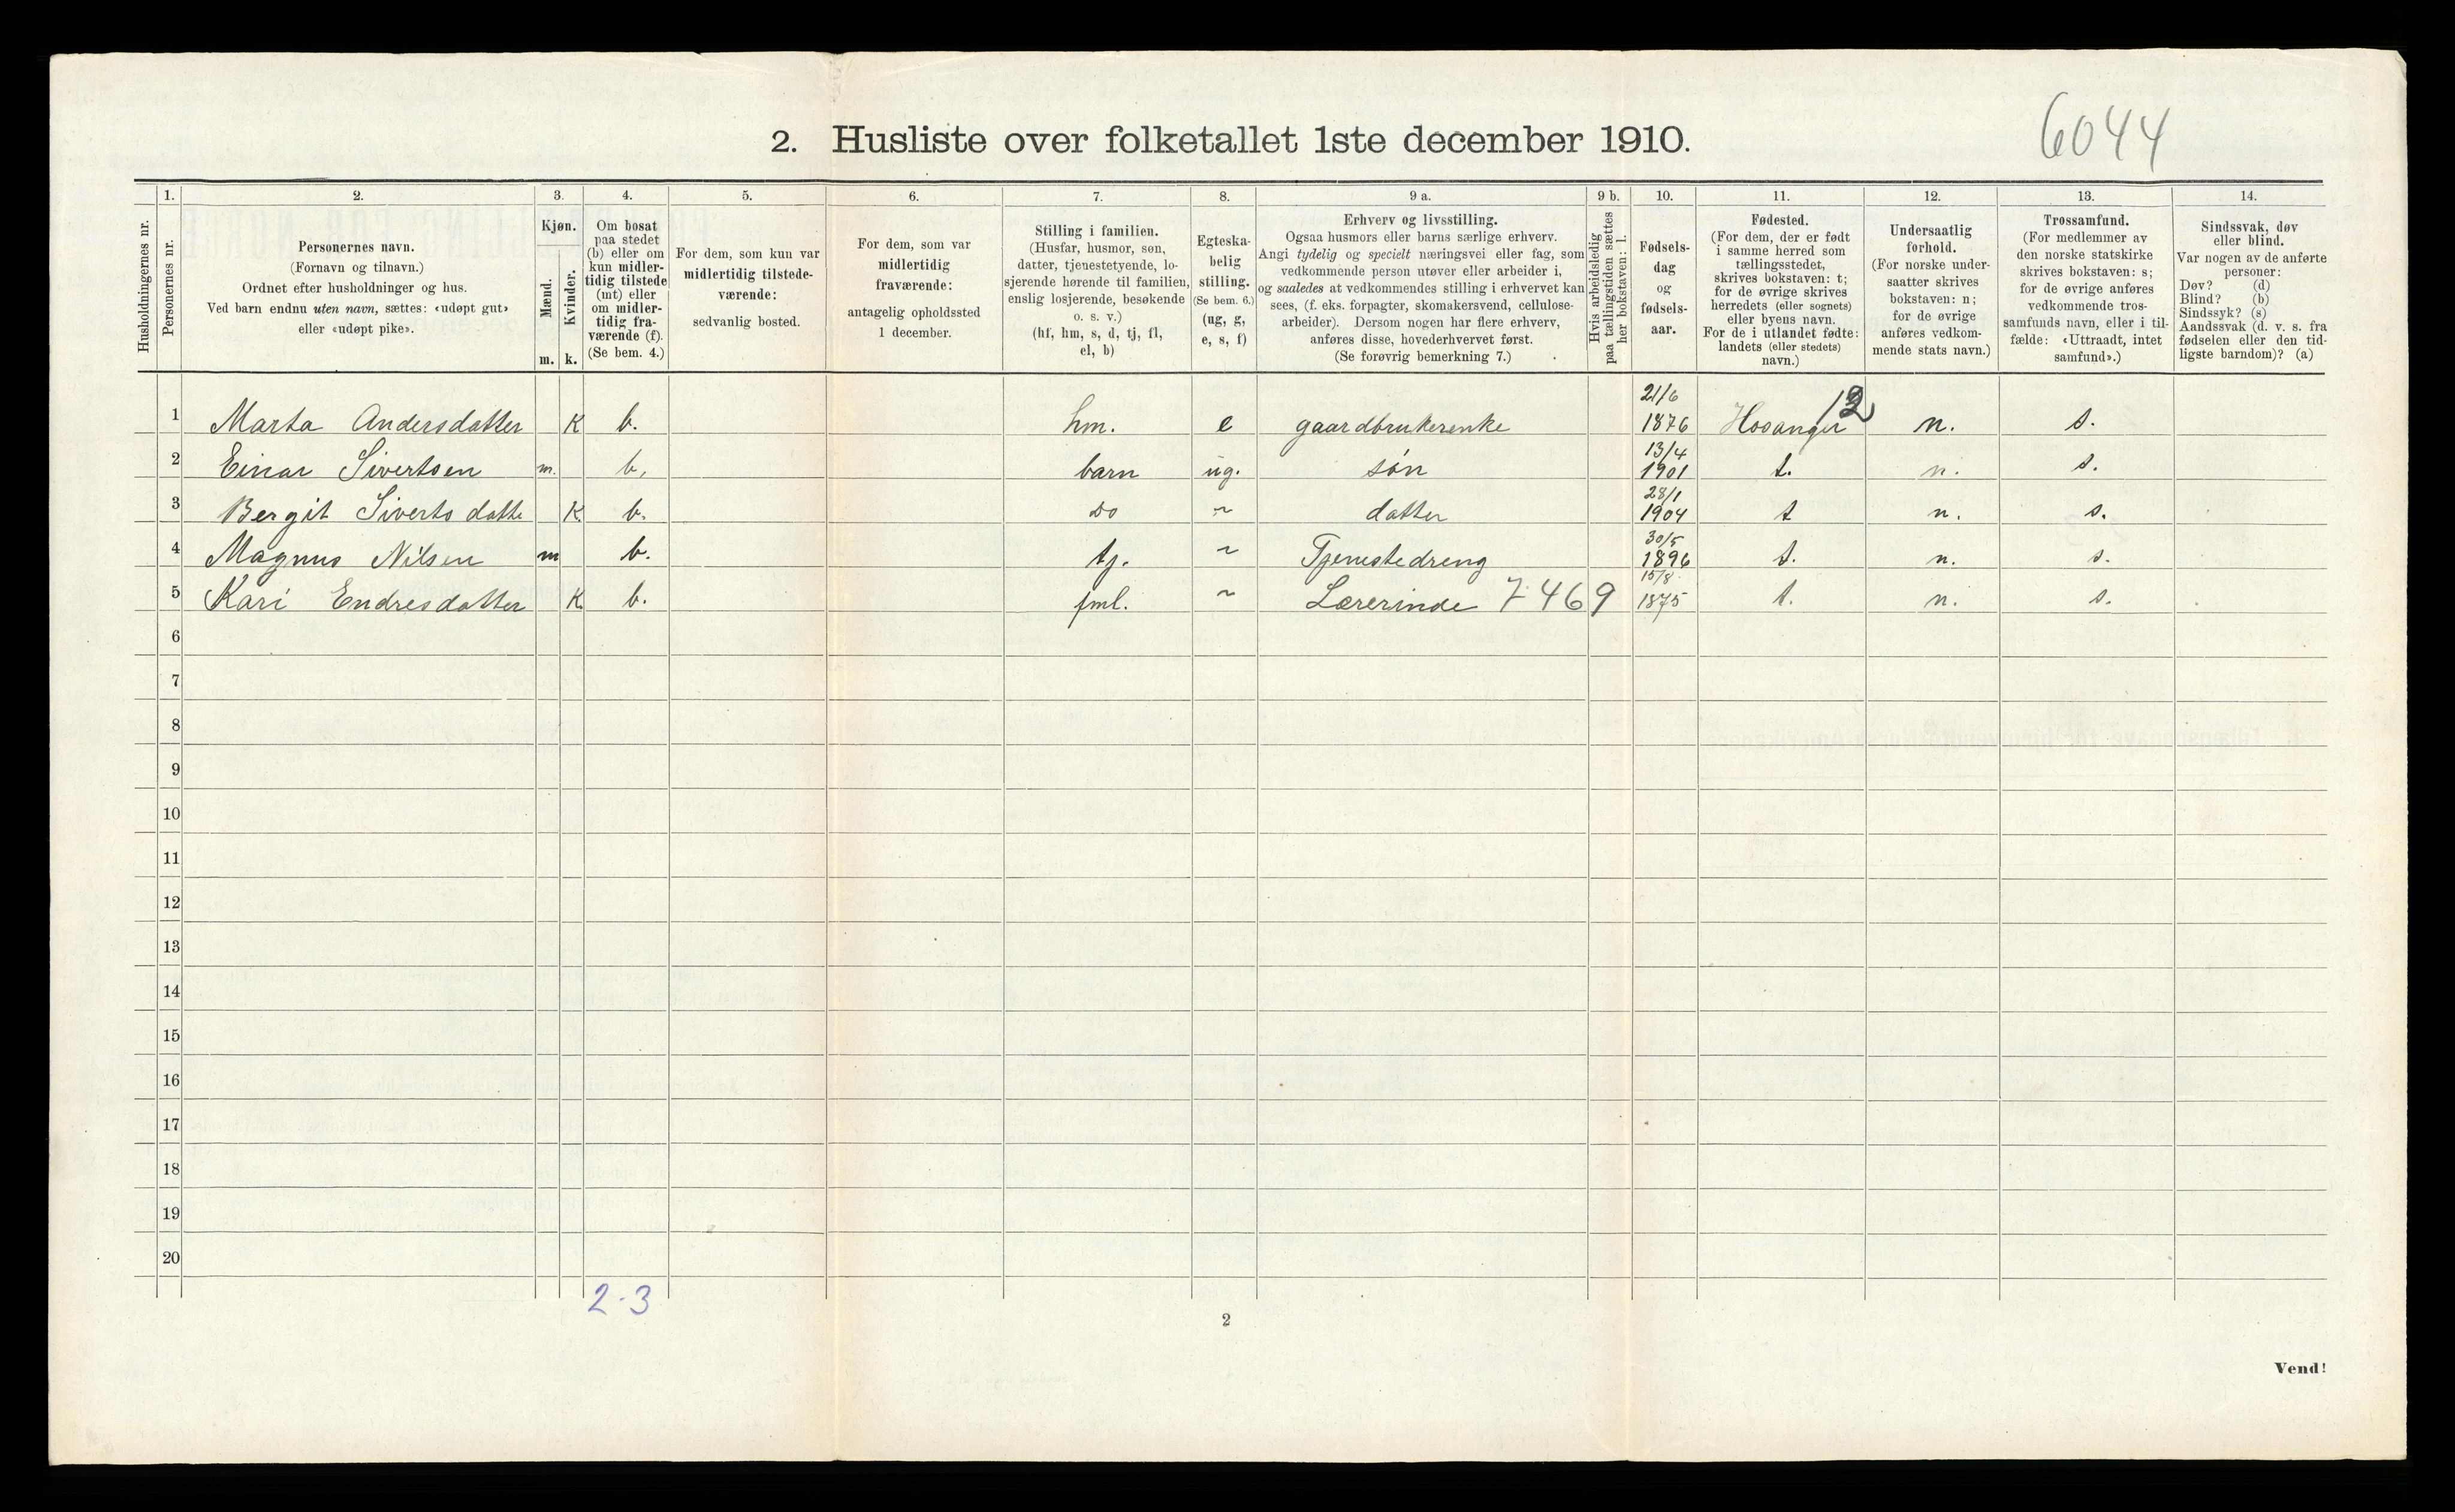 6044
2. Husliste over folketallet 1ste december 1910.
Husholdningernes nr.
1.
Personernes nr.
2.
Personernes navn.
(Fornavn og tilnavn.)
Ordnet efter husholdninger og hus.
Ved barn endnu uten navn, sættes: «udøpt gut»
eller «udøpt pike».
3.
Kjøn.
Mænd.
m.
Kvinder.
k.
4.
Om bosat
paa stedet
(b) eller om
kun midler-
tidig tilstede
(mt) eller
om midler-
tidig fra-
værende (f).
(Se bem. 4.)
5.
For dem, som kun var
midlertidig tilstede-
værende:
sedvanlig bosted.
6.
For dem, som var
midlertidig
fraværende:
antagelig opholdssted
1 december.
7.
Stilling i familien.
(Husfar, husmor, søn,
datter, tjenestetyende, lo-
sjerende hørende til familien,
enslig losjerende, besøkende
o. s. v.)
(hf, hm, s, d, tj, fl,
el, b)
8.
Egteska-
belig
stilling.
(Se bem. 6.)
(ug, g,
e, s, f)
9 a.
Erhverv og livsstilling.
Ogsaa husmors eller barns særlige erhverv.
Angi tydelig og specielt næringsvei eller fag, som
vedkommende person utøver eller arbeider i,
og saaledes at vedkommendes stilling i erhvervet kan
sees, (f. eks. forpagter, skomakersvend, cellulose-
arbeider). Dersom nogen har flere erhverv,
anføres disse, hovederhvervet først.
(Se forøvrig bemerkning 7.)
9 b.
Hvis arbeidsledig
paa tællingstiden sættes
her bokstaven: l.
10.
Fødsels-
dag
og
fødsels-
aar.
11.
Fødested.
(For dem, der er født
i samme herred som
tællingsstedet,
skrives bokstaven: t;
for de øvrige skrives
herredets (eller sognets)
eller byens navn.
For de i utlandet fødte:
landets (eller stedets)
navn.)
12.
Undersaatlig
forhold.
(For norske under-
saatter skrives
bokstaven: n;
for de øvrige
anføres vedkom-
mende stats navn.)
13.
Trossamfund.
(For medlemmer av
den norske statskirke
skrives bokstaven: s;
for de øvrige anføres
vedkommende tros-
samfunds navn, eller i til-
fælde: «Uttraadt, intet
samfund».)
14.
Sindssvak, døv
eller blind.
Var nogen av de anførte
personer:
Døv? (d)
Blind? (b)
Sindssyk? (s)
Aandssvak (d. v. s. fra
fødselen eller den tid-
ligste barndom)? (a)
1 Marta Andersdatter K b. hm. e gaardbrukerenke 21/6 1876 Hosanger 12 n. s.
2 Einar Sivertsen m. b, barn ug. søn 13/4 1901 t. n. s.
3 Bergit Siverts datte K. b. Do ~ datter 28/1 1904 t n. s.
4 Magnus Nilsen m b. tj. ~ Tjenestedreng 30/5 1896 t. n. s.
5 Kari Endresdatter K. b. fml. ~ Lærerinde 7469 15/8 1875 t. n. s.
6
7
8
9
10
11
12
13
14
15
16
17
18
19
20
2-3
2
Vend!